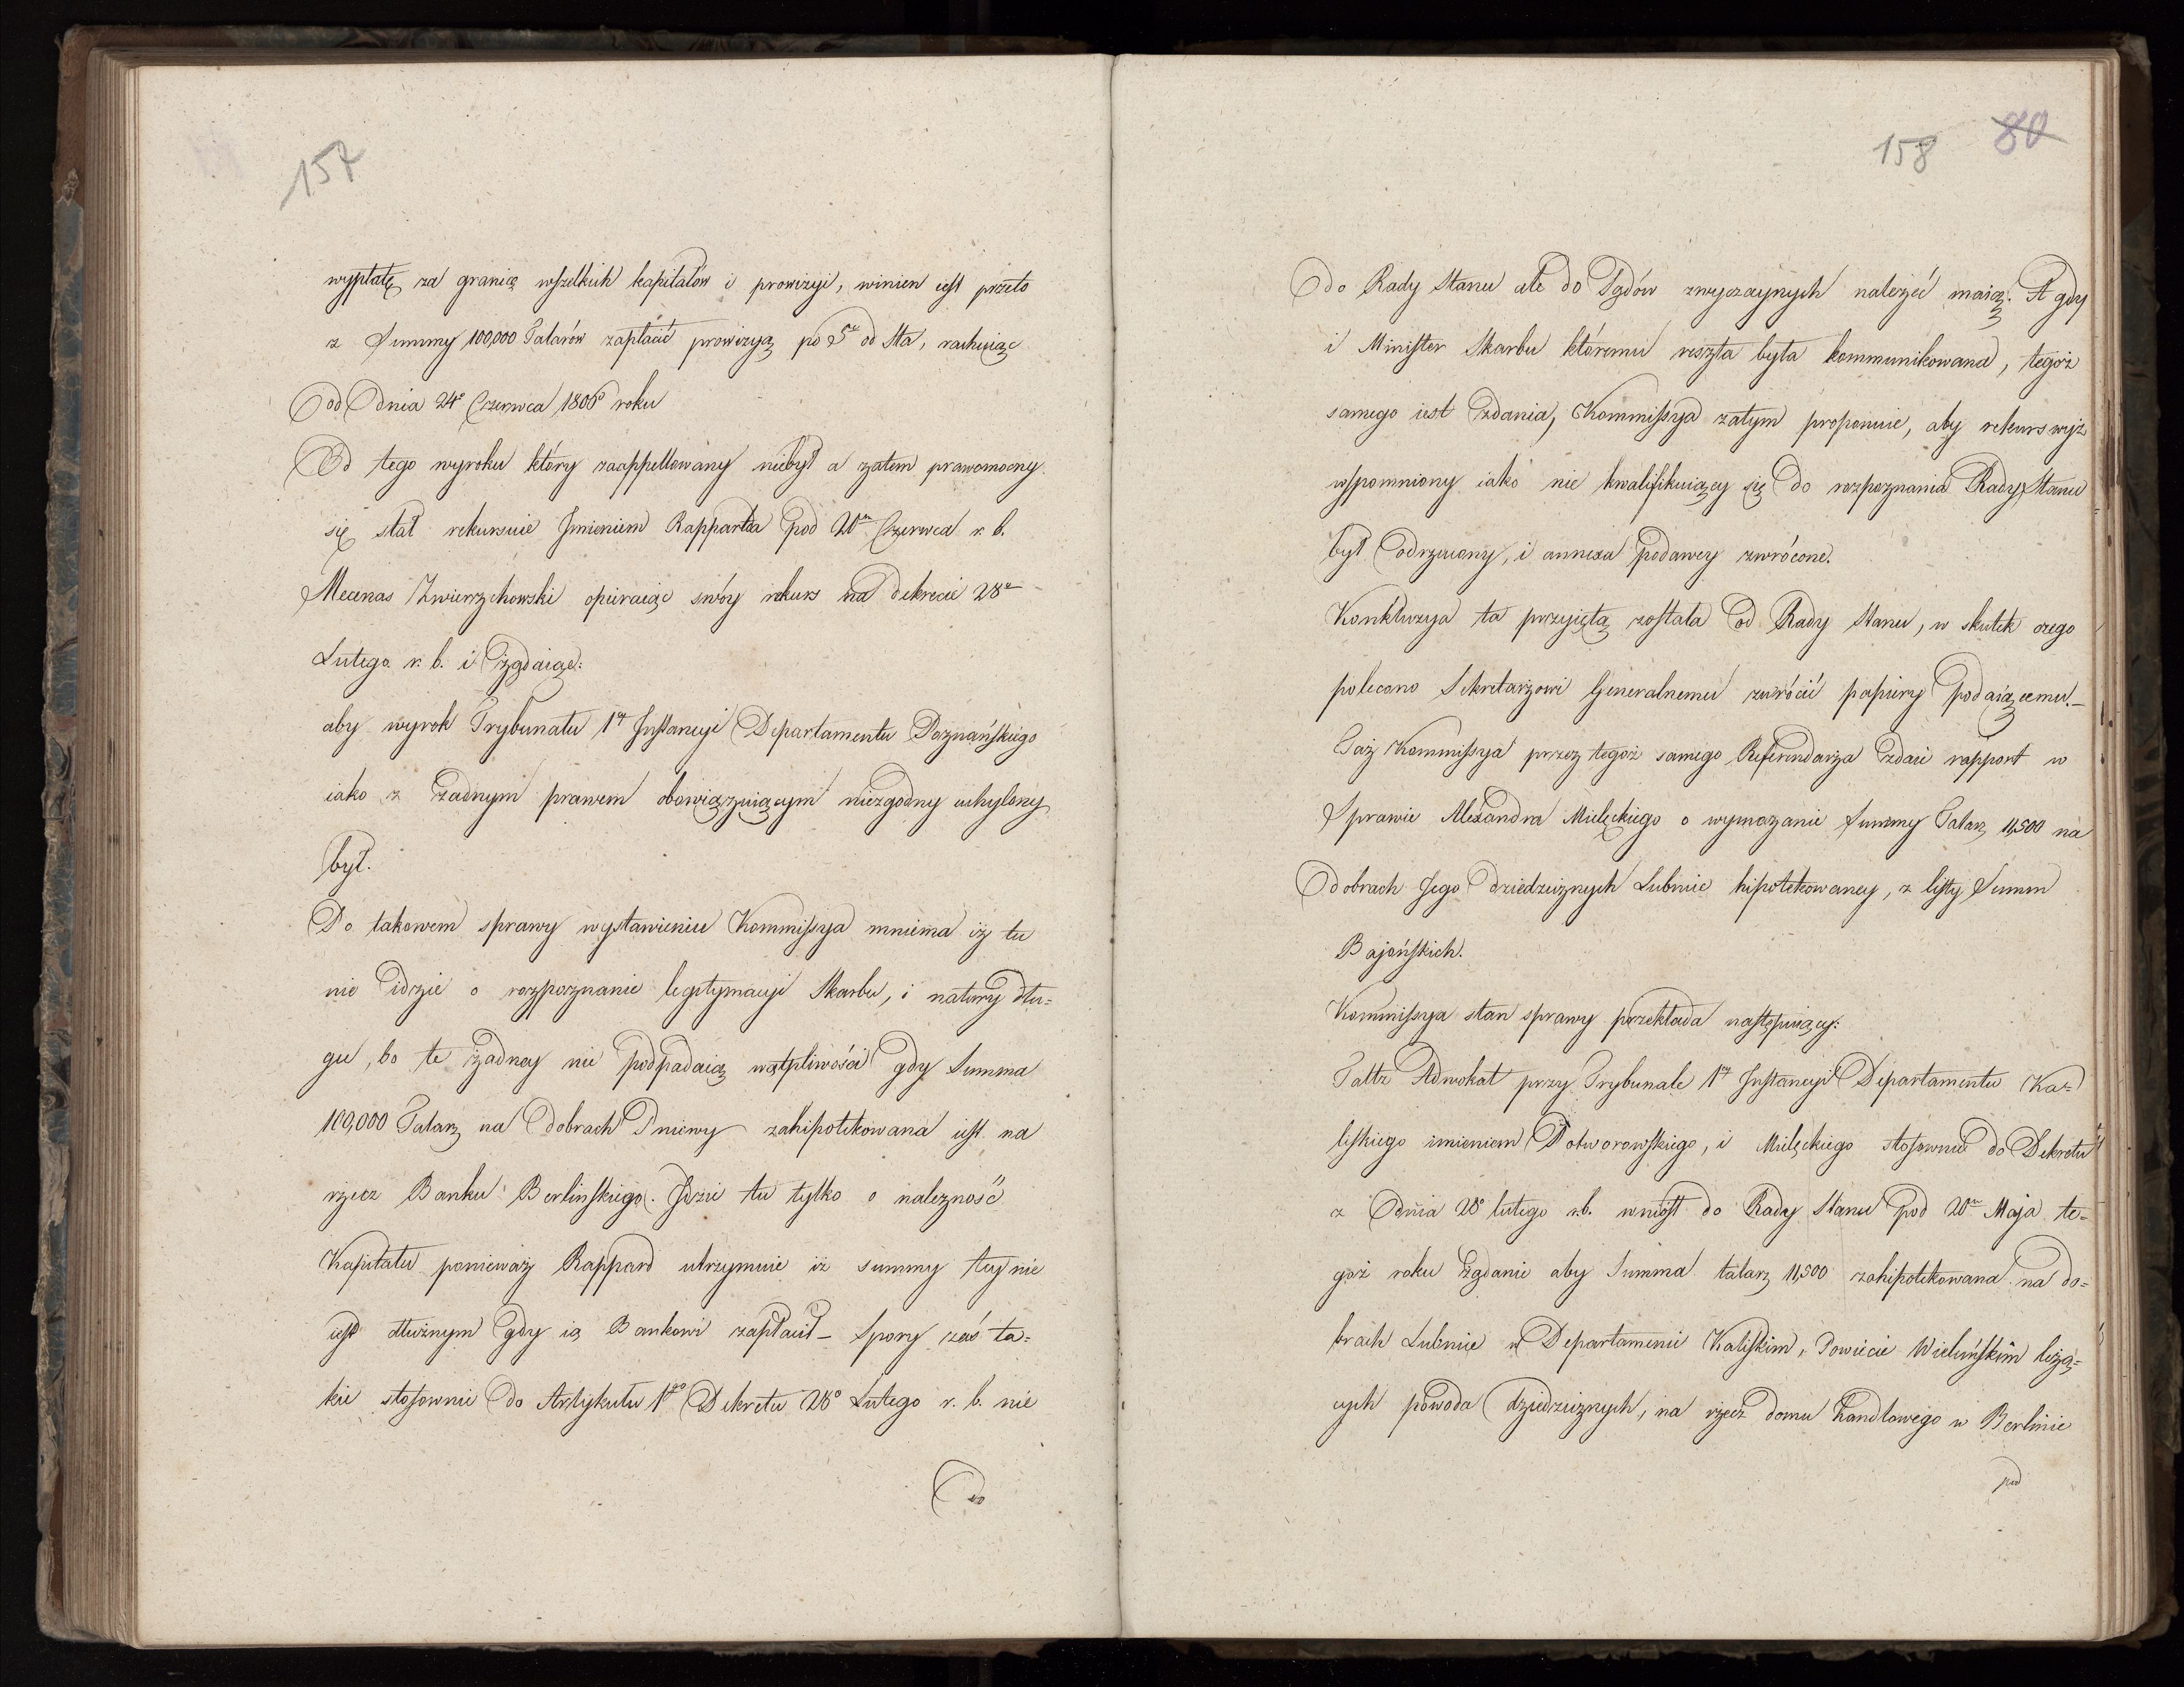 157
wypłatę za granicę wszelkich kapitałów i prowizyi, winien iest przeto
z Summy 100,000 Talarów zapłacić prowizyą po 5r od Sta, rachuiąc
od dnia 24o Czerwca 1806o roku
Od tego wyroku który zaappellowany niebył a zatem prawomocny
się stał rekursuie Imieniem Rapparda pod 20m Czerwca r. b.
Mecenas Zwierzchowski opieraiąc swóy rekurs na dekrecie 28o
Lutego r. b. i żądaiąc:
aby wyrok Trybunału 1ey Instancyi Departamentu Poznańskiego
iako z żadnym prawem obowiązuiącym niezgodny uchylony
był.
Po takowem sprawy wystawieniu Kommissya mniema iż tu
nie idzie o rozpoznanie legitymacyi Skarbu, i natury dłu=
gu, bo te żadney nie podpadaią wątpliwości gdy Summa
100,000 Talarz na dobrach Pniewy zahipotekowana iest na
rzecz Banku Berlinskiego. Idzie tu tylko o należność
Kapitału ponieważ Rappard utrzymuie iż summy tey nie
iest dłużnym gdy ią Bankowi zapłacił – Spory zaś ta=
kie stosownie do Artykułu 1go Dekretu 28o Lutego r. b. nie
do
158 80
do Rady Stanu ale do Sądów zwyczaynych należeć maią. A gdy
i Minister Skarbu któremu reszta była kommunikowana, tegoż
samego iest zdania, Kommissya zatym proponuie, aby rekurs wyż
wspomniony iako nie kwalifikuiący się do rozpoznania Rady Stanu
był odrzucony, i annexa podawcy zwrócone.
Konkluzya ta przyięta została od Rady Stanu, w skutek czego
polecono Sekretarzowi Generalnemu zwrócić papiery podaiącemu. –
Taż Kommissya przez tegoż samego Referendarza zdaie rapport w
Sprawie Alexandra Mielęckiego o wymazanie Summy Talarz 11,500 na
dobrach Jego dziedzicznych Lubnie hipotekowaney, z listy Summ
Bajońskich.
Kommissya stan sprawy przekłada następuiący:
Taltz Adwokat przy Trybunale 1ey Instancyi Departamentu Ka=
liskiego imieniem Potworowskiego, i Mielęckiego stosownie do Dekretu
z dnia 28o lutego r.b. wniosł do Rady Stanu pod 20m Maja te=
goż roku żądanie aby Summa talarz 11,500 zahipotekowana na do=
brach Lubnie w Departamencie Kaliskim, Powiecie Wieluńskim leżą=
cych powoda dziedzicznych, na rzecz domu handlowego w Berlinie
pod